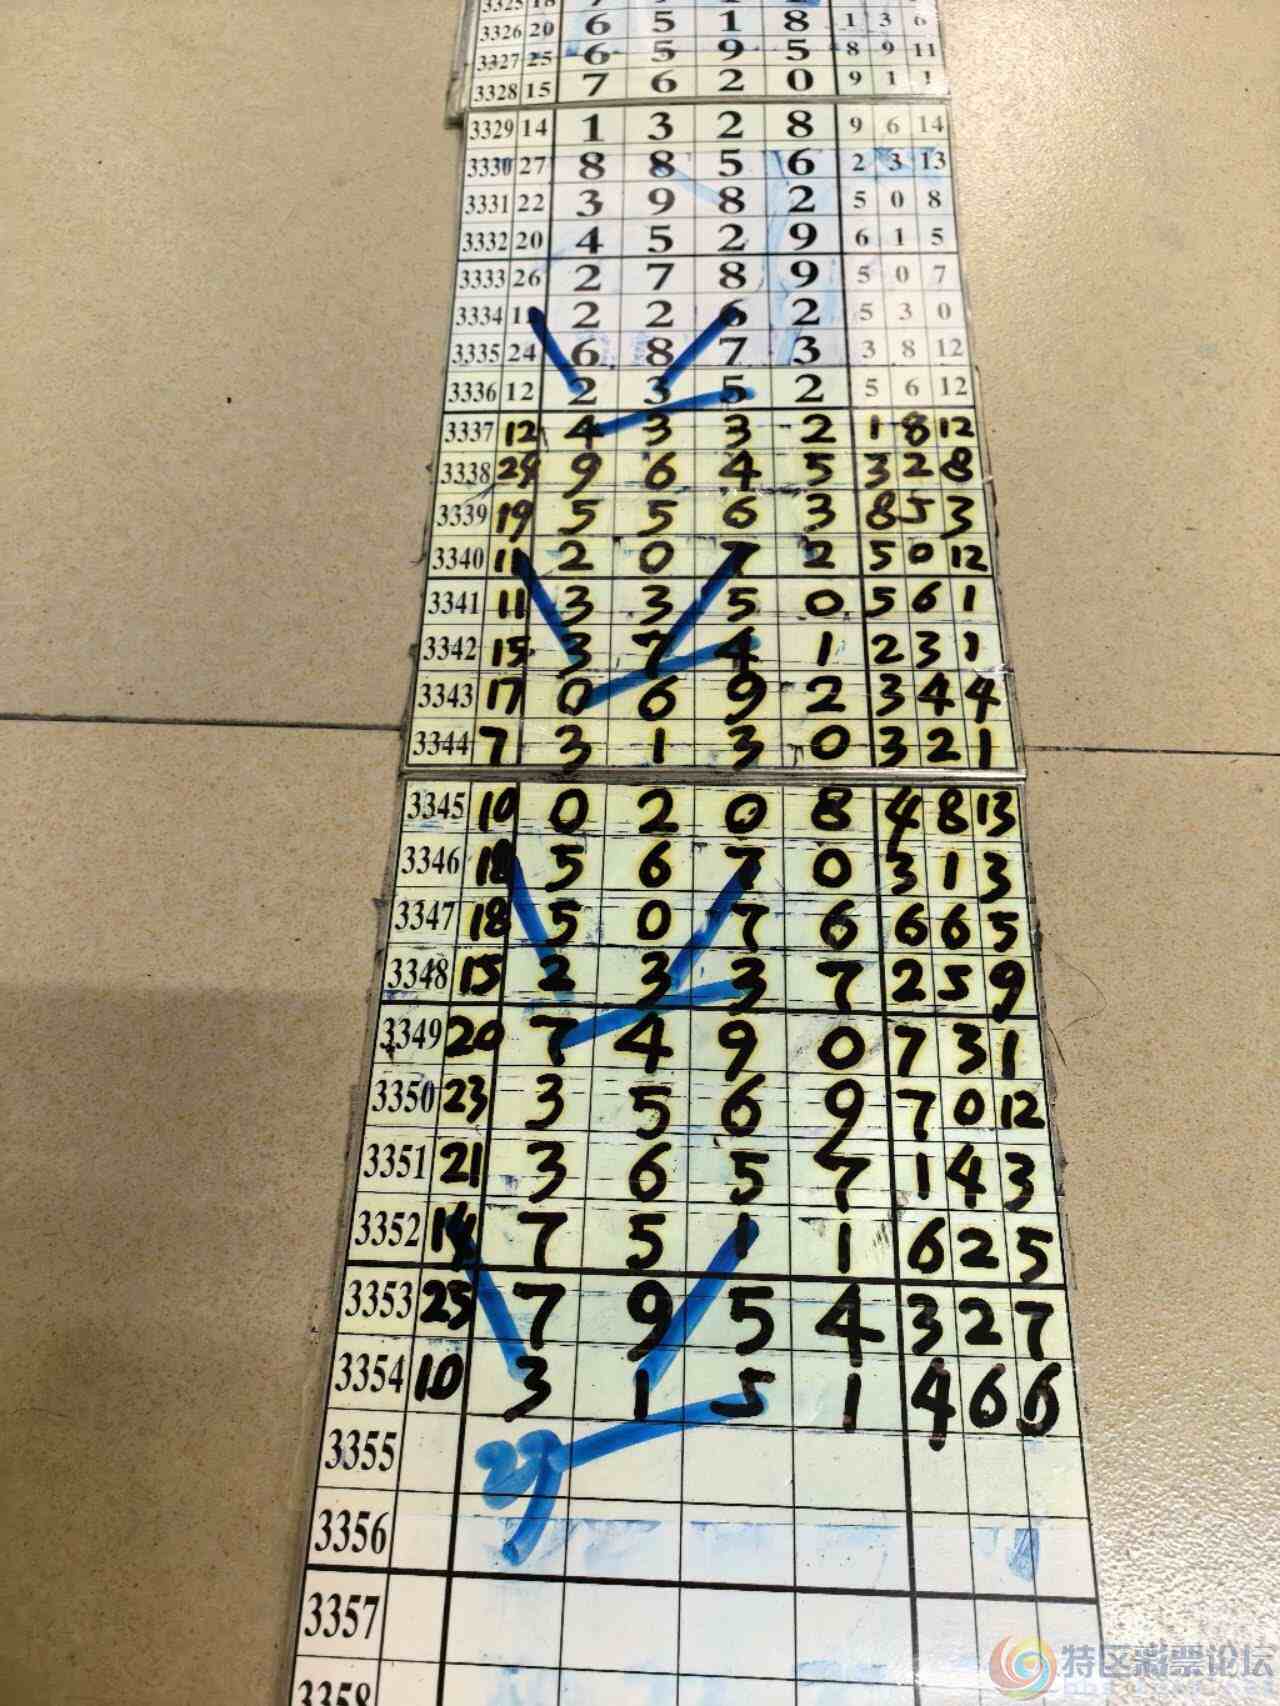 3325 18
3326 20 6 5 1 8 1 3 6
3327 25 6 5 9 5 8 9 11
3328 15 7 6 2 0 9 1 1
3329 14 1 3 2 8 9 6 14
3330 27 8 8 5 6 2 3 13
3331 22 3 9 8 2 5 0 8
3332 20 4 5 2 9 6 1 5
3333 26 2 7 8 9 5 0 7
3334 2 2 6 2 5 3 0
3335 24 6 8 7 3 3 8 12
3336 12 2 3 5 2 5 6 12
3337 12 4 3 3 2 1 8 12
3338 24 9 6 4 5 3 2 8
3339 19 5 5 6 3 8 5 3
3340 11 2 0 7 2 5 0 12
3341 11 3 3 5 0 5 6 1
3342 15 3 7 4 1 2 3 1
3343 17 0 6 9 2 3 4 4
3344 7 3 1 3 0 3 2 1
3345 10 0 2 0 8 4 8 13
3346 18 5 6 7 0 3 1 3
3347 18 5 0 7 6 6 6 5
3348 15 2 3 3 7 2 5 9
3349 20 7 4 9 0 7 3 1
3350 23 3 5 6 9 7 0 12
3351 21 3 6 5 7 1 4 3
3352 14 7 5 1 1 6 2 5
3353 25 7 9 5 4 3 2 7
3354 10 3 1 5 1 4 6 6
3355
3356
3357
3358
特区彩票论坛